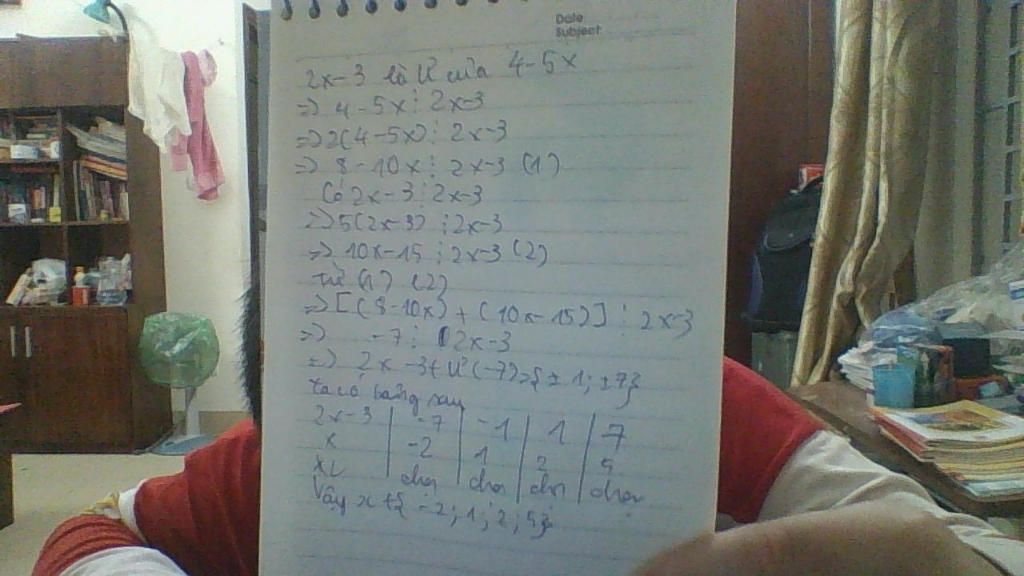 Date
Subject
2x-3 là Ư của 4-5x
=> 4-5x ⋮ 2x-3
=> 2(4-5x) ⋮ 2x-3
=> 8-10x ⋮ 2x-3 (1)
Có 2x-3 ⋮ 2x-3
=> 5(2x-3) ⋮ 2x-3
=> 10x-15 ⋮ 2x-3 (2)
từ (1) (2)
=> [(8-10x) + (10x-15)] ⋮ 2x-3
=> -7 ⋮ 2x-3
=> 2x-3 ∈ Ư(-7) = {±1; ±7}
ta có bảng sau
2x-3 | -7 | -1 | 1 | 7
x | -2 | 1 | 2 | 5
KL | chọn | chọn | chọn | chọn
Vậy x ∈ {-2; 1; 2; 5}